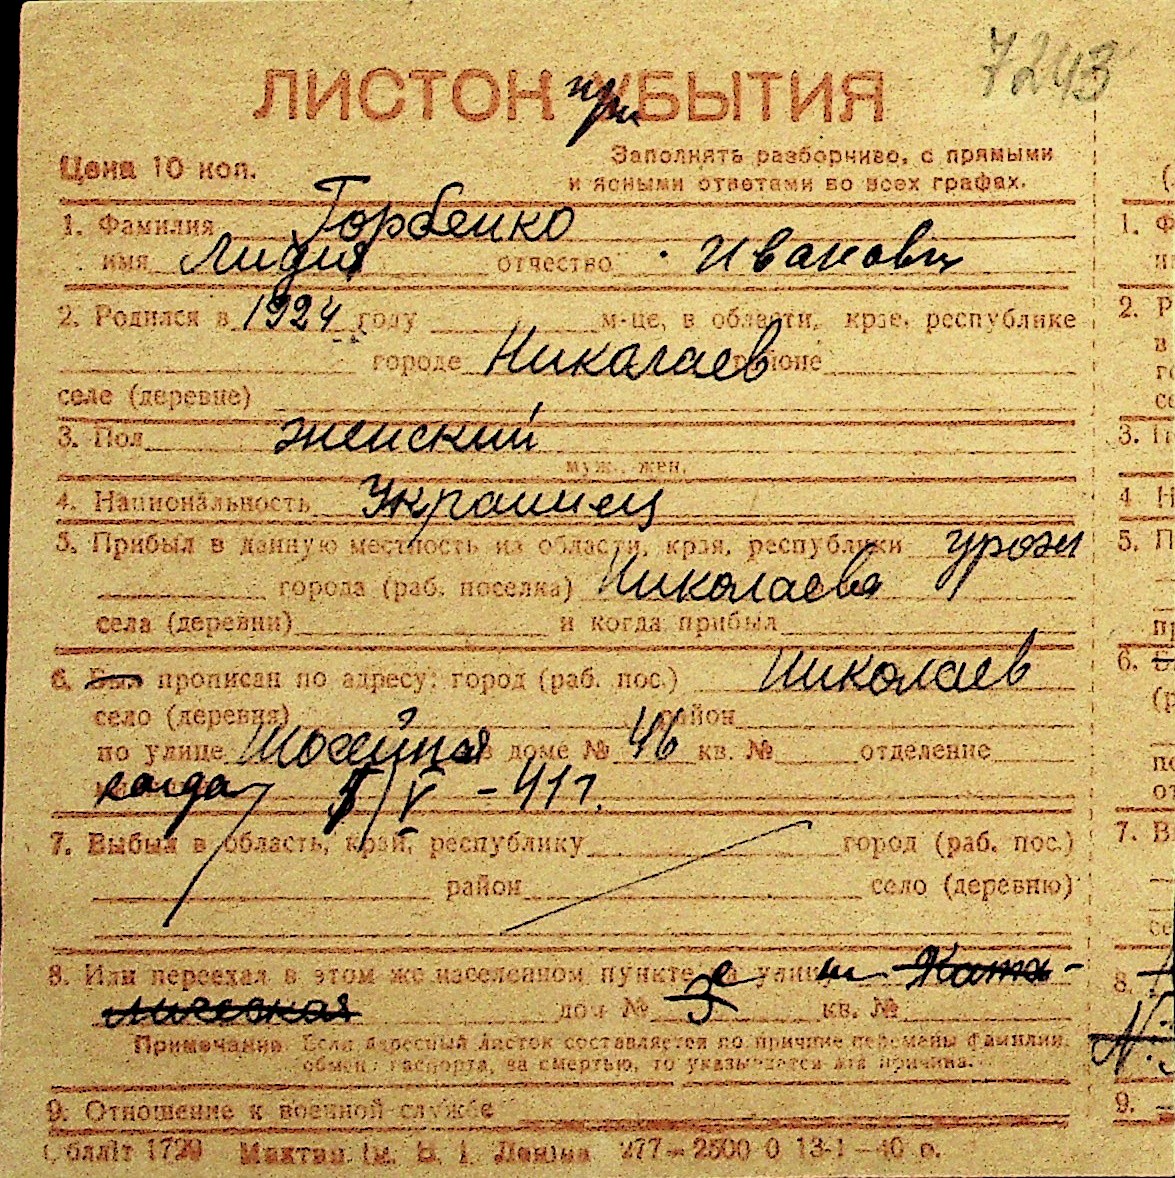 7243
ЛИСТОК при БЫТИЯ
Цена 10 коп.
Заполнять разборчиво, с прямыми
и ясными ответами во всех графах.
1. Фамилия Горбенко
имя Лидия отчество Ивановн
2. Родился в 1924 году м-це, в области, крае, республике
городе Николаев районе
селе (деревне)
3. Пол женский
муж., жен.
4. Национальность Украинец
5. Прибыл в данную местность из области, края, республики урож
города (раб. поселка) Николаева
села (деревни) и когда прибыл
6. Был прописан по адресу: город (раб. пос.) Николаев
село (деревня) район
по улице в доме № 46 кв. № отделение
когда 5/V - 41 г.
7. Выбыл в область, край, республику город (раб. пос.)
район село (деревню)
8. Или переехал в этом же населенном пункте на улицу
дом № 3 кв. №
Примечание Если адресный листок составляется по причине перемены фамилии,
обмена паспорта, за смертью, то указывается эта причина.
9. Отношение к военной службе
Облліт 1729 ім. В. І. Леніна 277—2500 0 13-1—40 р.
1. Ф
2. Р
в
3. П
4 Н
5. П
6.
7. В
8.
9.